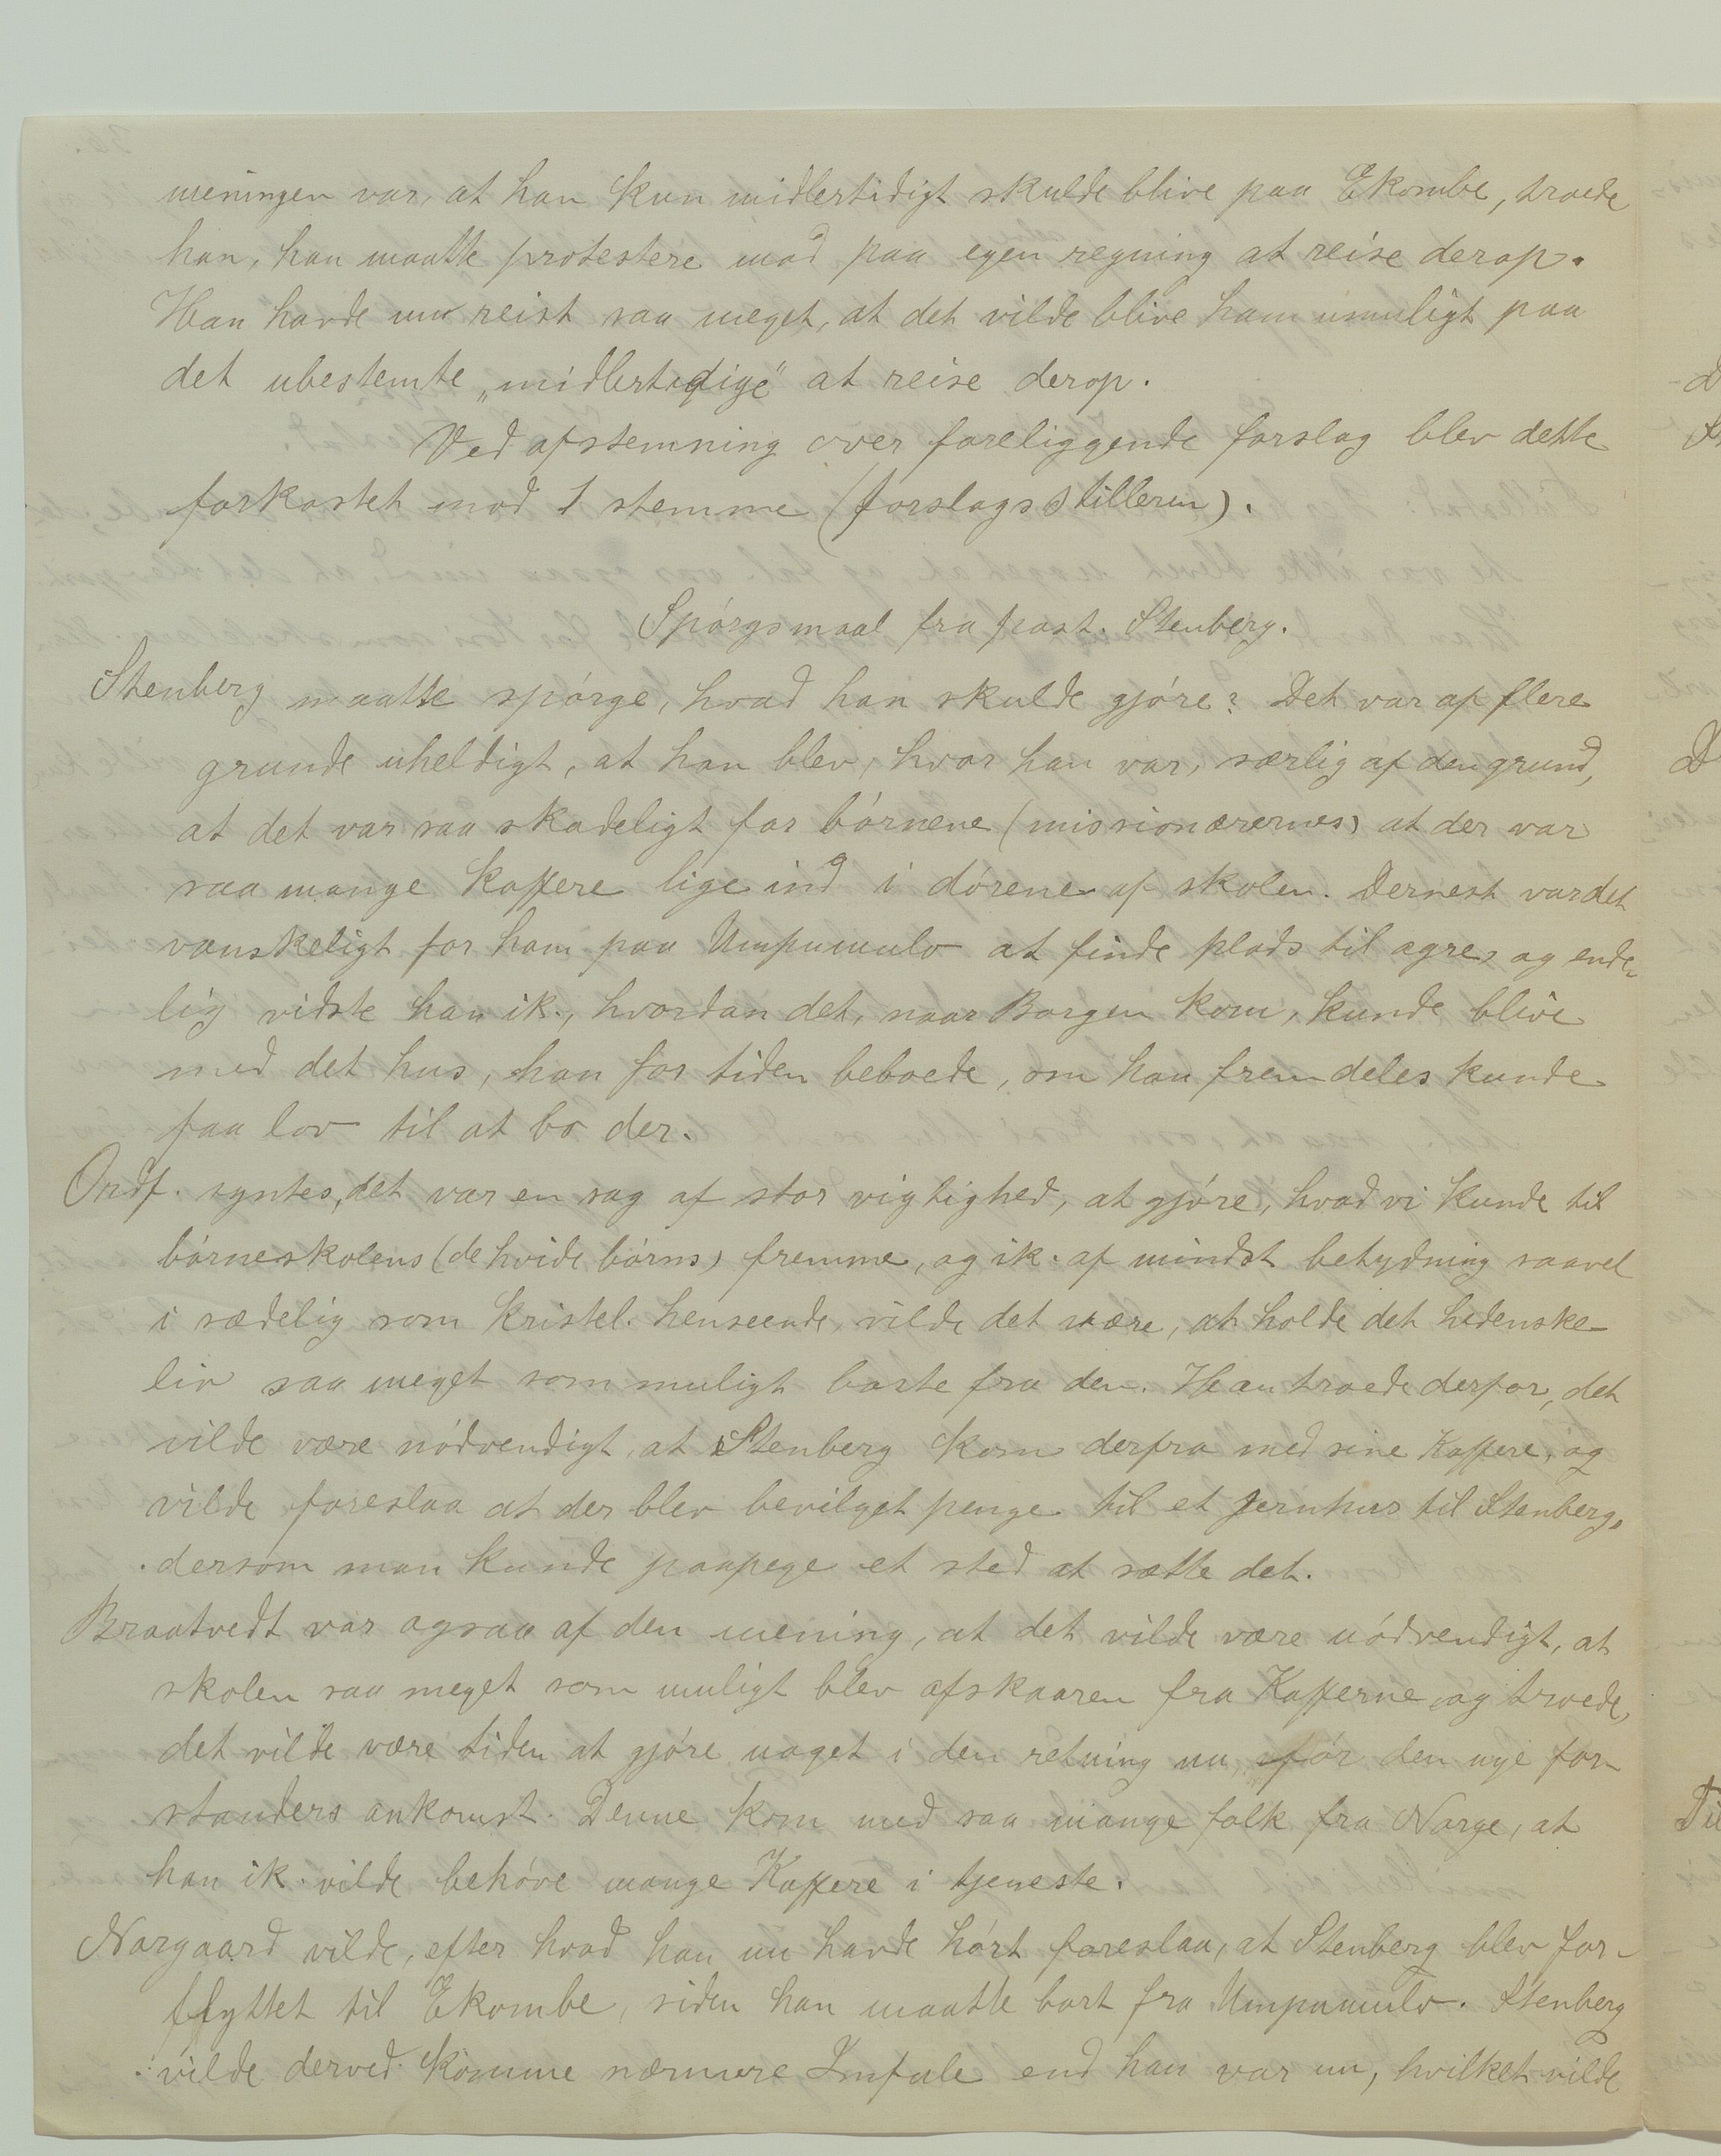 meningen var, at han kun midlertidigt skulde blive paa Ekombe, troede
han, han maatte protestere mod paa egen regning at reise derop.
Han havde nu reist saa meget, at det vilde blive ham umuligt paa
det ubestemte „midlertidige" at reise derop.
Ved afstemning over foreliggende forslag blev dette
forkastet mod 1 stemme (forslagsstilleren).
Spórgsmaal fra past. Stenberg.
Stenberg maatte spórge, hvad han skulde gjóre? Det var af flere
grunde uheldigt, at han blev, hvor han var, særlig af den grund,
at det var saa skadeligt for bórnene (missionærernes) at der var
saa mange kaffere lige ind i dórene af skolen. Dernest var det
vanskeligt for ham paa Umpumulo at finde plads til agre, og ende-
lig vidste han ik., hvordan det, naar Borgen kom, kunde blive
med det hus, han for tiden beboede, om han fremdeles kunde
faa lov til at bo der.
Ordf. syntes, det var en sag af stor vigtighed, at gjóre, hvad vi kunde til
bórneskolens (de hvide bórns) fremme, og ik. af mindst betydning saavel
i sædelig som kristel. henseende, vilde det være, at holde det hedenske
liv saa meget som muligt borte fra den. Han troede derfor, det
vilde være nódvendigt, at Stenberg kom derfra med sine Kaffere, og
vilde foreslaa at der blev bevilget penge til et jernhus til Stenberg,
dersom man kunde paapege et sted at sætte det.
Braatvedt var ogsaa af den mening, at det vilde være nódvendigt, at
skolen saa meget som muligt blev afskaaren fra Kafferne, og troede,
det vilde være tiden at gjóre noget i den retning nu fór den nye for-
standers ankomst. Denne kom med saa mange folk fra Norge, at
han ik. vilde behóve mange Kaffere i tjeneste.
Norgaard vilde, efter hvad han nu havde hórt foreslaa, at Stenberg blev for-
flyttet til Ekombe, siden han maatte bort fra Umpumulo. Stenberg
vilde derved komme nærmere Imfule end han var nu, hvilket vilde